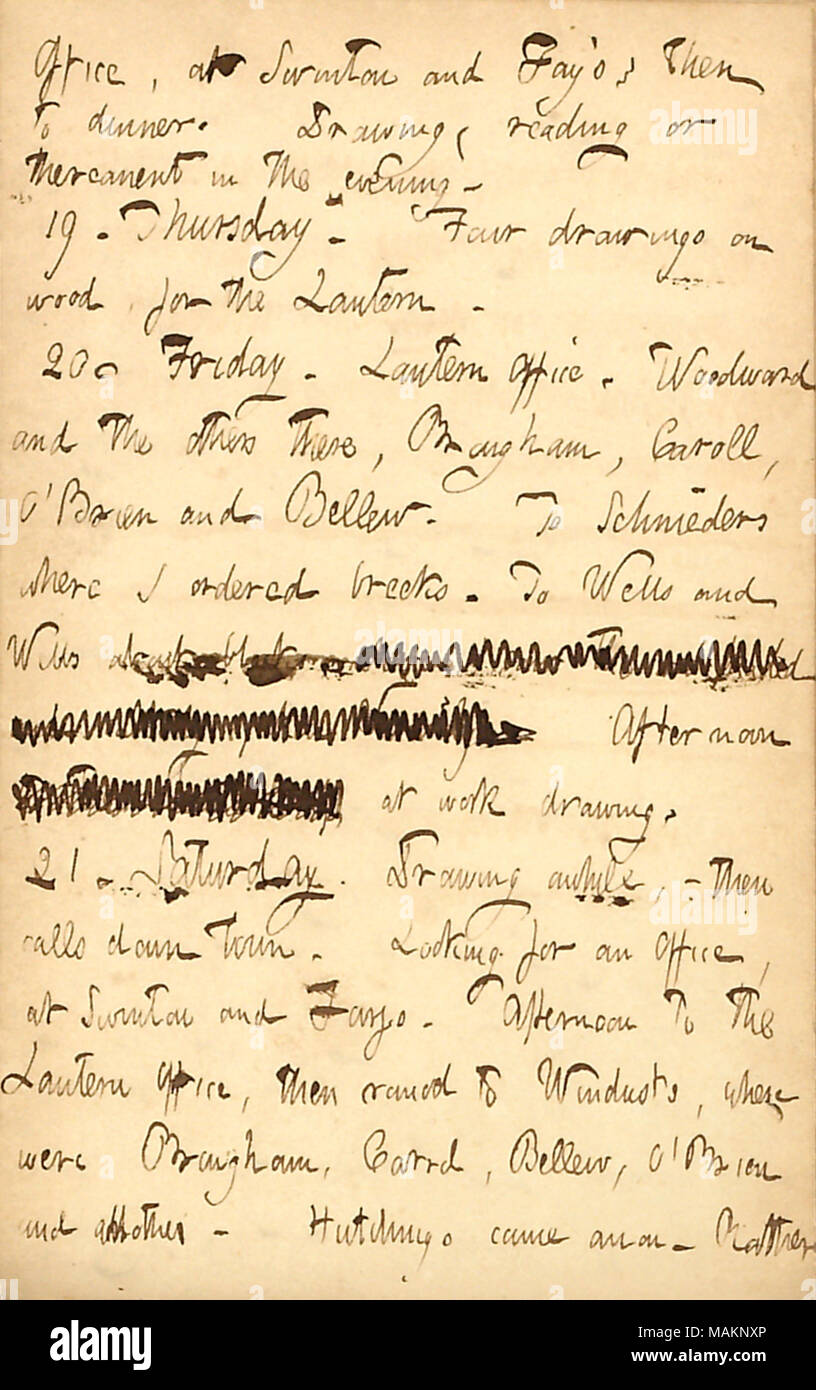 Office, at Swinton and Fay's, then
to dinner. Drawing, reading or
thereanent in the evening.
19. Thursday. Four drawings on
wood for the Lantern.
20. Friday. Lantern Office. Woodward
and the others there, Brougham, Caroll,
O'Brien and Bellew. To Schmieders
where I ordered breeks. To Wells and
Webs about blocks
Afternoon
at work drawing.
21. Saturday. Drawing awhile, - then
calls down town. Looking for an Office,
at Swinton and Fays. Afternoon to the
Lantern Office, then round to Windusts, where
were Brougham, Carrol, Bellew, O'Brien
and another - Hutchings came anon. Rather
alamy
Image ID: MAKNXP
www.alamy.com